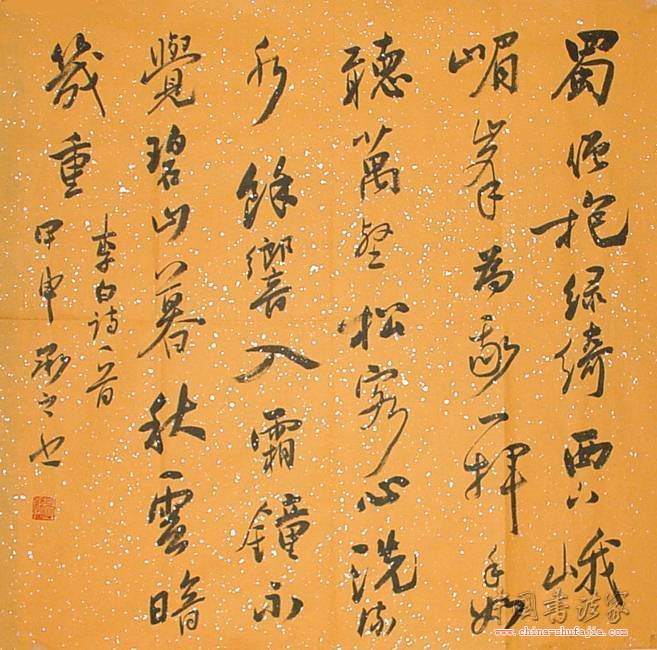 蜀僧抱緑綺西下峨
嵋峯為我一揮手如
聽萬壑松客心洗流
水餘響入霜鐘不
覺碧山暮秋雲暗
幾重
李白詩一首
甲申
中国书法家
www.china-shufajia.com